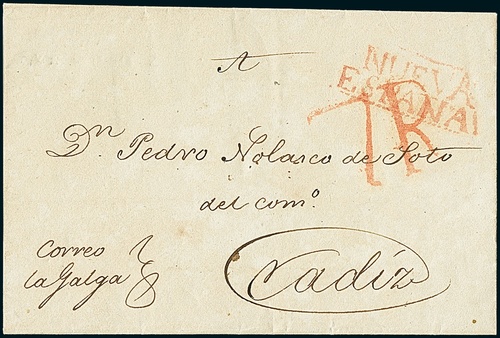 A
NUEVA
ESPAÑA
7R
Dn Pedro Nolasco de Soto
del como.
Correo
la Galga
Cadiz